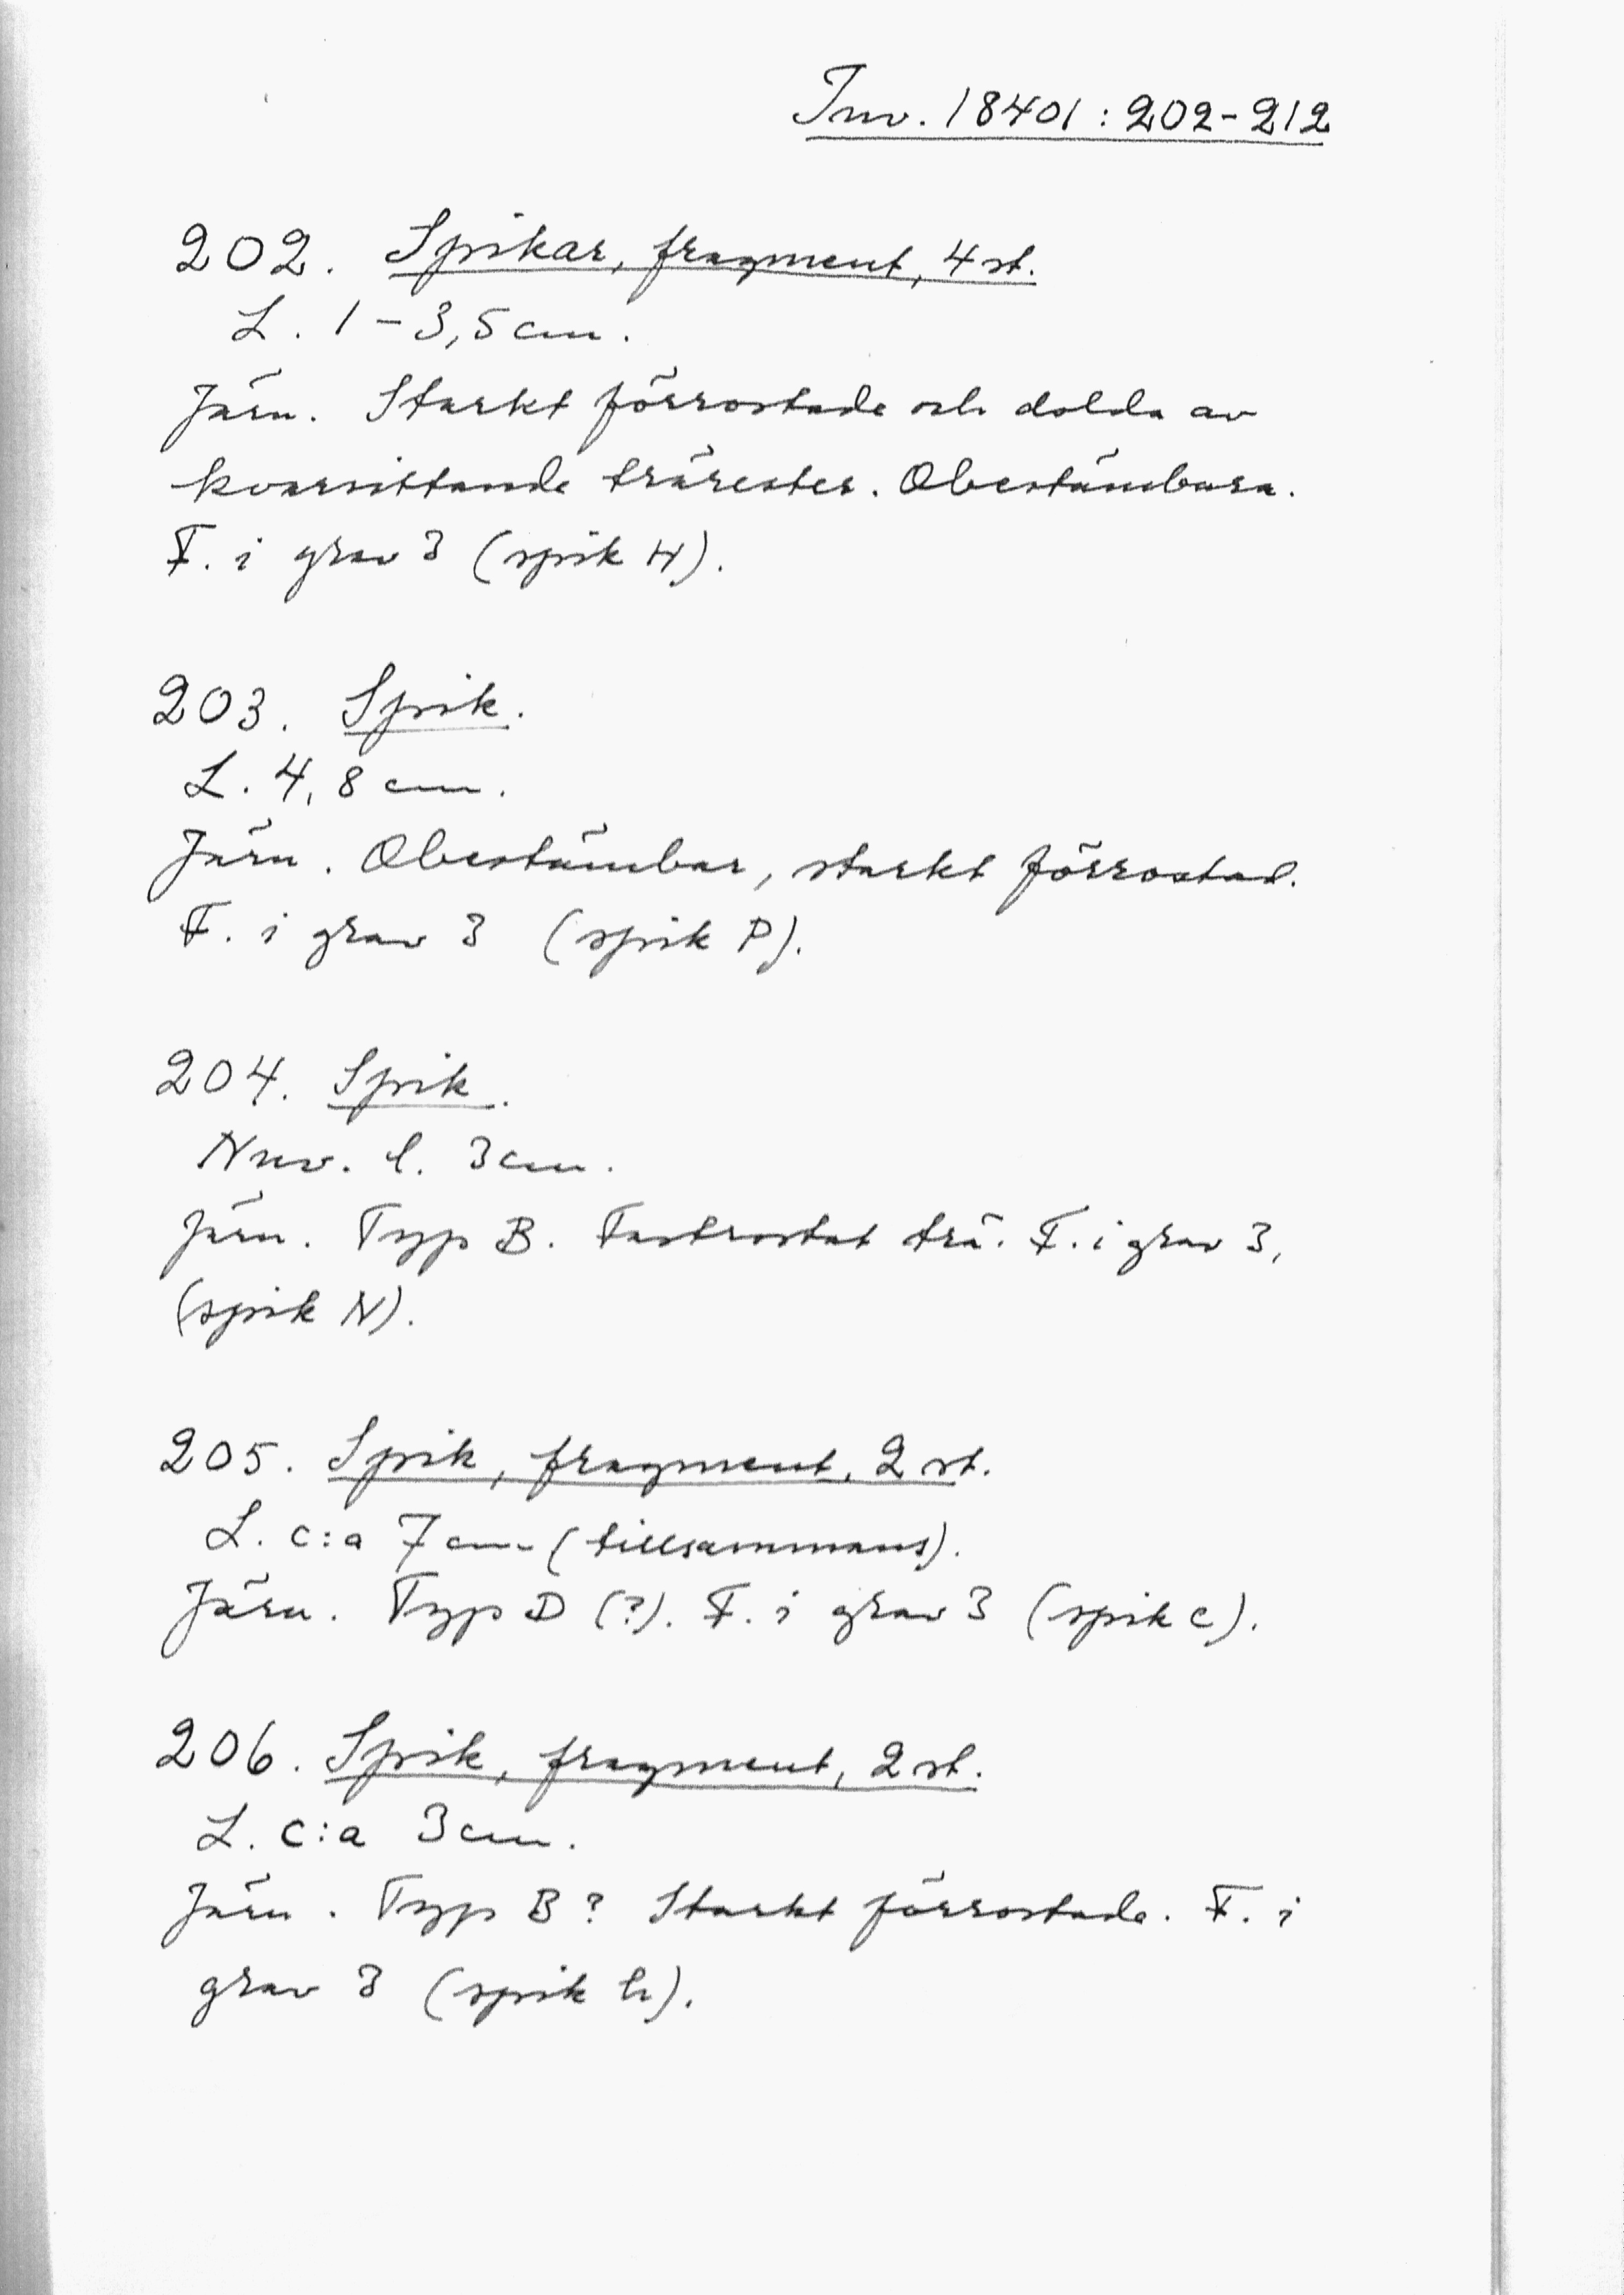 Inv. 18401:202-212
202. Spikar, fragment, 4 st.
L. 1-3,5 cm.
Järn. Starkt förrostade och dolda av
kvarsittande trärester. Obestämbara.
F. i grav 3 (spik H).
203. Spik.
L. 4,8 cm.
Järn. Obestämbar, starkt förrostad.
F. i grav 3 (spik P).
204. Spik.
Nuv. l. 3 cm.
Järn. Typ B. Fastrostat trä. F. i grav 3,
(spik N).
205. Spik, fragment, 2 st.
L. c:a 7 cm (tillsammans).
Järn. Typ D (?). F. i grav 3 (spik c).
206. Spik, fragment, 2 st.
L. c:a 3 cm.
Järn. Typ B? Starkt förrostade. F. i
grav 3 (spik h).